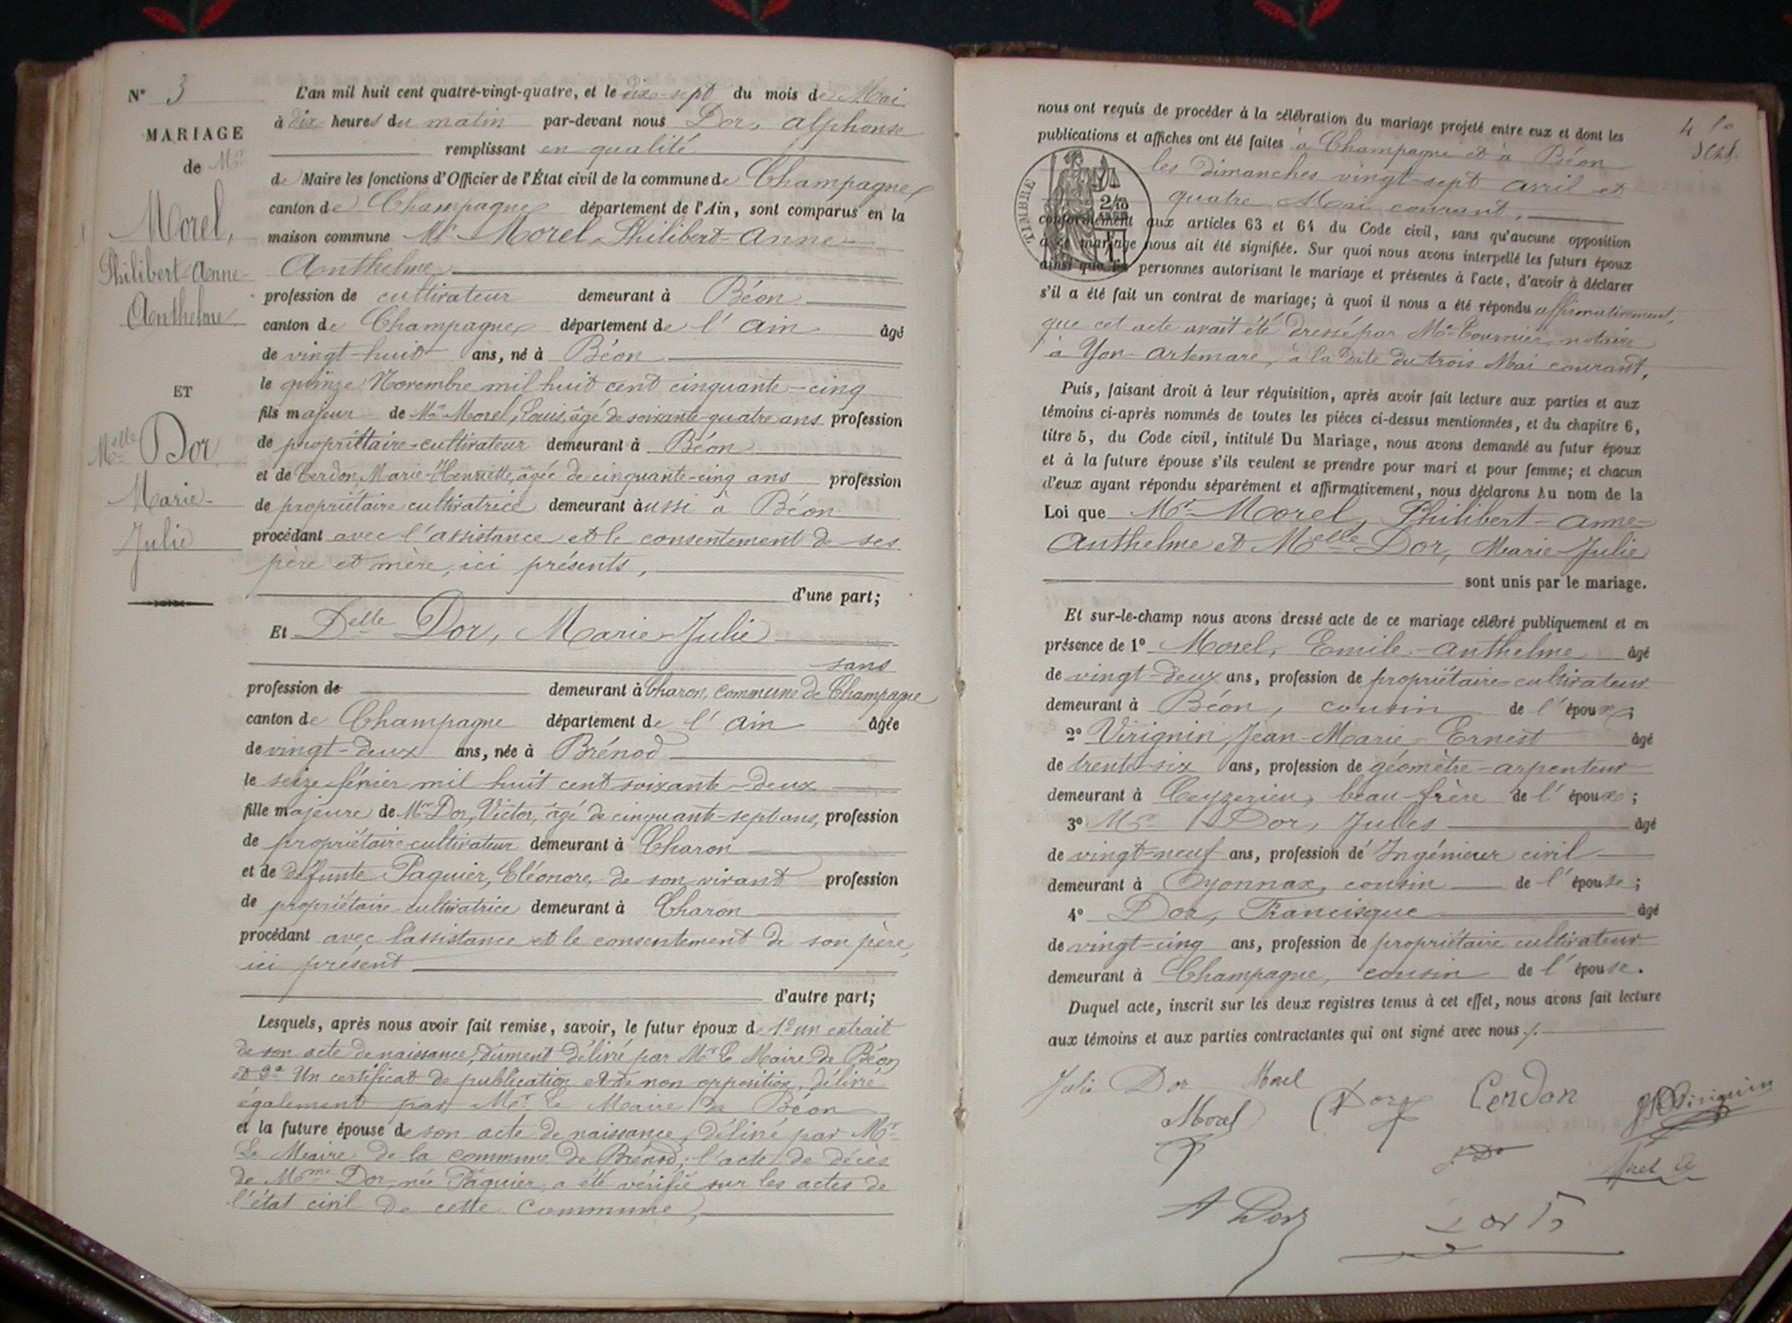 N° 3
MARIAGE
de Mr
Morel,
Philibert-Anne-
Anthelme
ET
Melle Dor
Marie-
Julie
L'an mil huit cent quatre-vingt-quatre, et le dix-sept du mois de Mai
à dix heures du matin par-devant nous Dor, Alphonse
remplissant en qualité
de Maire les fonctions d'Officier de l'État civil de la commune de Champagne,
canton de Champagne département de l'Ain, sont comparus en la
maison commune Mr Morel, Philibert-Anne-
Anthelme,
profession de cultivateur demeurant à Béon
canton de Champagne département de l'Ain âgé
de vingt-huit ans, né à Béon
le quinze Novembre mil huit cent cinquante-cinq
fils majeur de Mr Morel, Louis, âgé de soixante-quatre ans profession
de propriétaire-cultivateur demeurant à Béon
et de Cerdon, Marie-Henriette, âgée de cinquante-cinq ans profession
de propriétaire cultivatrice demeurant aussi à Béon
procédant avec l'assistance et le consentement de ses
père et mère, ici présents,
d'une part;
Et Delle Dor, Marie-Julie
sans
profession de demeurant à Charon, commune de Champagne
canton de Champagne département de l'Ain âgée
de vingt-deux ans, née à Brénod
le seize février mil huit cent soixante-deux
fille majeure de Mr Dor, Victor, âgé de cinquante-sept ans, profession
de propriétaire-cultivateur demeurant à Charon
et de défunte Paquier, Eléonore, de son vivant profession
de propriétaire-cultivatrice demeurant à Charon
procédant avec l'assistance et le consentement de son père,
ici présent
d'autre part;
Lesquels, après nous avoir fait remise, savoir, le futur époux de 1° un extrait
de son acte de naissance, dûment délivré par Mr le Maire de Béon,
et 2° Un certificat de publication et de non opposition, délivré
également par Mr le Maire de Béon
et la future épouse de son acte de naissance, délivré par Mr
Le Maire de la commune de Brénod; l'acte de décès
de Mme Dor, née Paquier, a été vérifié sur les actes de
l'état civil de cette commune,
nous ont requis de procéder à la célébration du mariage projeté entre eux et dont les
publications et affiches ont été faites à Champagne et à Béon
les dimanches vingt-sept avril et
quatre Mai courant,
TIMBRE
conformément aux articles 63 et 64 du Code civil, sans qu'aucune opposition
à ce mariage nous ait été signifiée. Sur quoi nous avons interpellé les futurs époux
ainsi que les personnes autorisant le mariage et présentes à l'acte, d'avoir à déclarer
s'il a été fait un contrat de mariage; à quoi il nous a été répondu affirmativement,
que cet acte avait été dressé par Me Tournier, notaire
à Yon-Artemare, à la date du trois Mai courant.
Puis, faisant droit à leur réquisition, après avoir fait lecture aux parties et aux
témoins ci-après nommés de toutes les pièces ci-dessus mentionnées, et du chapitre 6,
titre 5, du Code civil, intitulé Du Mariage, nous avons demandé au futur époux
et à la future épouse s'ils veulent se prendre pour mari et pour femme; et chacun
d'eux ayant répondu séparément et affirmativement, nous déclarons Au nom de la
Loi que Mr Morel, Philibert-Anne-
Anthelme et Melle Dor, Marie-Julie
sont unis par le mariage.
Et sur-le-champ nous avons dressé acte de ce mariage célébré publiquement et en
présence de 1° Morel, Emile-Anthelme âgé
de vingt-deux ans, profession de propriétaire-cultivateur
demeurant à Béon, cousin de l'époux;
2° Virignin, Jean-Marie-Ernest âgé
de trente-six ans, profession de géomètre-arpenteur
demeurant à Ceyzerieu, beau-frère de l'époux;
3° Mr Dor, Jules âgé
de vingt-neuf ans, profession d'Ingénieur civil
demeurant à Oyonnax, cousin de l'épouse;
4° Dor, Francisque âgé
de vingt-cinq ans, profession de propriétaire cultivateur
demeurant à Champagne, cousin de l'épouse.
Duquel acte, inscrit sur les deux registres tenus à cet effet, nous avons fait lecture
aux témoins et aux parties contractantes qui ont signé avec nous
Julie Dor Morel
Morel Dor Cerdon Virignin
A Dor